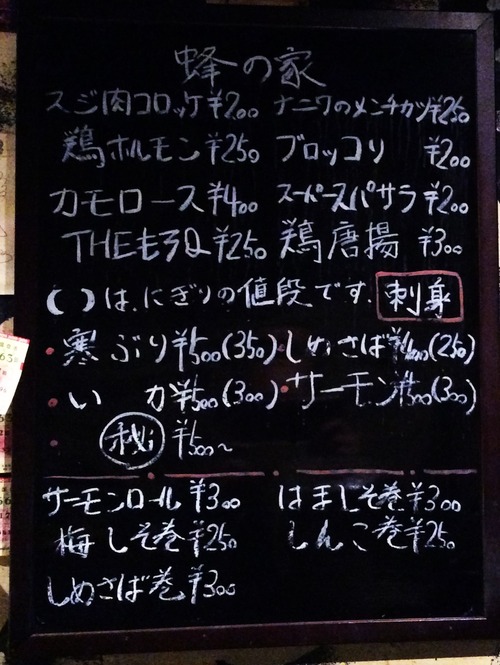 蜂の家
スジ肉コロッケ¥200 ナニワのメンチカツ¥250
鶏ホルモン¥250 ブロッコリ ¥200
カモロース¥400 スーパースパサラ¥200
THEもろQ¥250 鶏唐揚 ¥300
( )は、にぎりの値段です、 刺身
・寒ぶり¥500(350)・しめさば¥400(250)
・いか¥500(300)・サーモン¥500(300)
・ ¥500~
サーモンロール¥300 はましそ巻¥300
梅しそ巻¥250 しんこ巻¥250
しめさば巻¥300